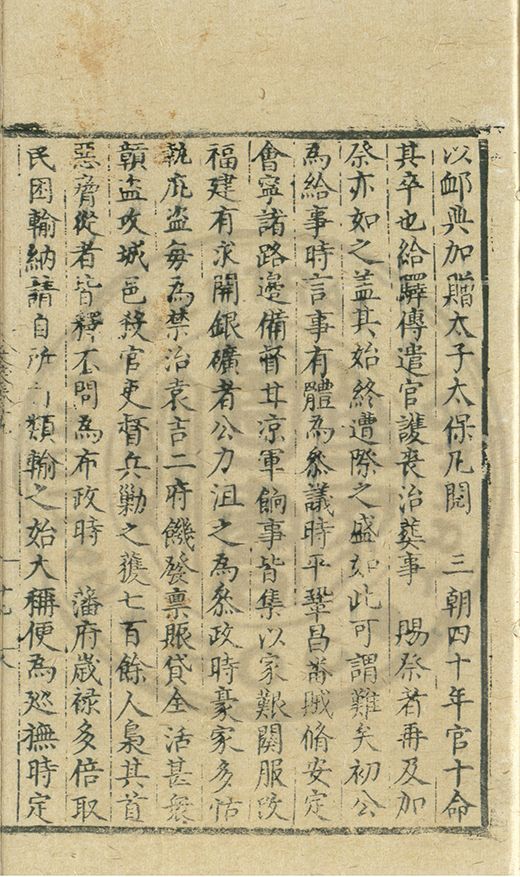 以䘏典加贈太子太保凡閱　三朝四十年官十命
其卒也給驛傳遣官護丧治葬事　賜祭者再及加
祭亦如之盖其始終遭際之盛如此可謂難矣初公
為給事時言事有體為叅議時平鞏昌畨賊脩安定
會寧諸路邊備督甘凉軍餉事皆集以家艱関服改
福建有求開銀礦者公力沮之為叅政時豪家多怙
執庇盗每為禁治袁吉二府饑發禀賑貸全活甚衆
贑盗攻城邑殺官吏督兵勦之獲七百餘人梟其首
惡脅從者皆釋不問為布政時　藩府歲禄多倍取
民困輸納請自所司類輸之始大稱便為廵撫時定